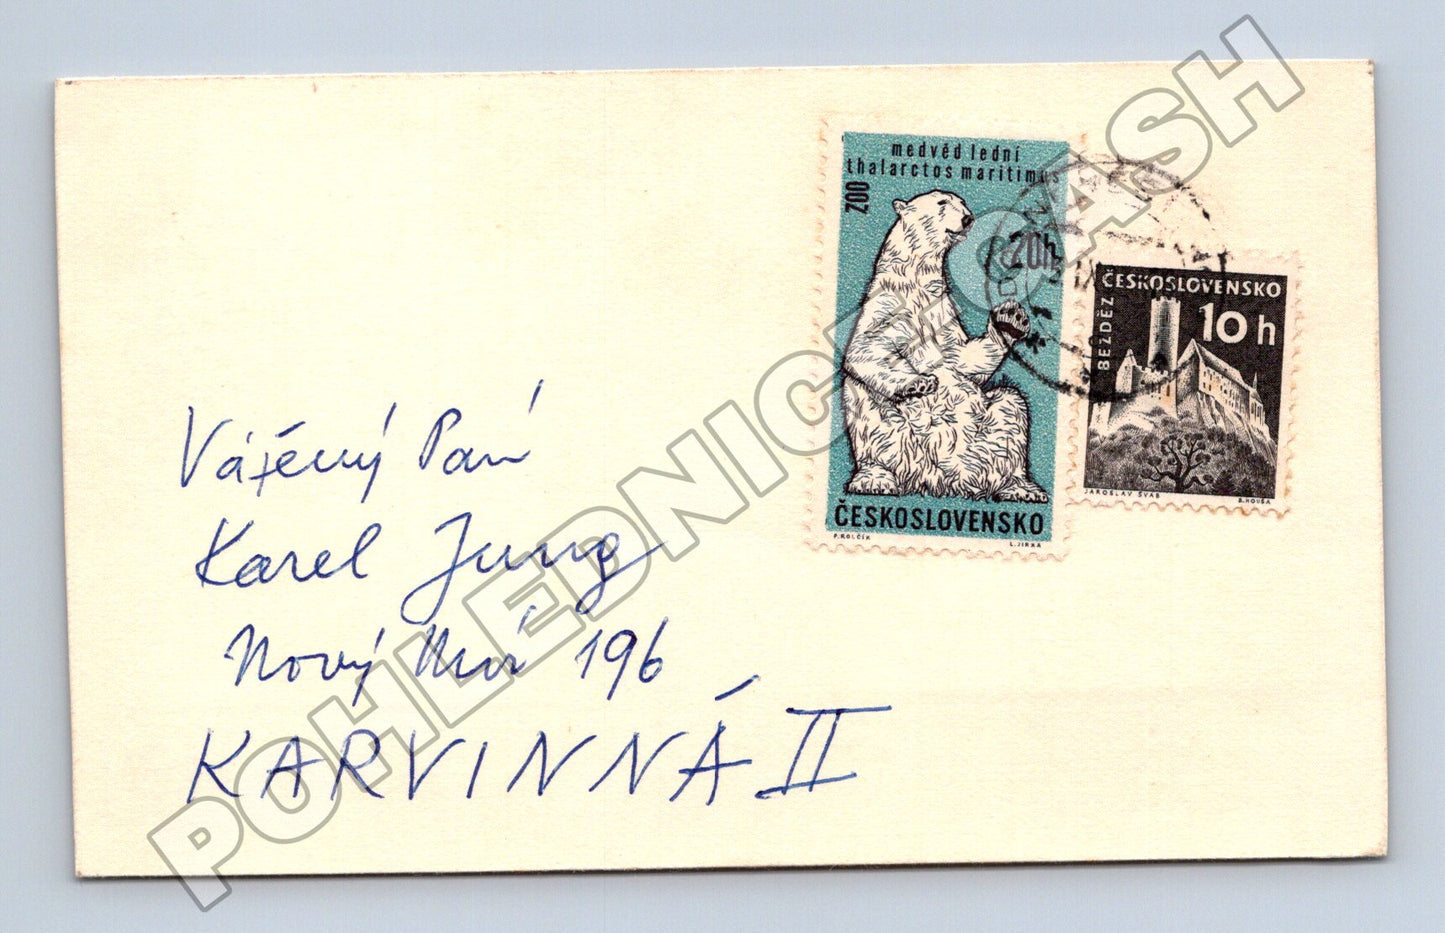 medvěd lední
thalarctos maritimus
ZOO
20h
ČESKOSLOVENSKO
P. KOLČÍK
L. JIRKA
ČESKOSLOVENSKO
BEZDĚZ
10 h
JAROSLAV ŠVÁB
B. HOUSA
Vážený Pan
Karel Jung
Nový 196
KARVINNÁ II
POHLEDNICE CASH